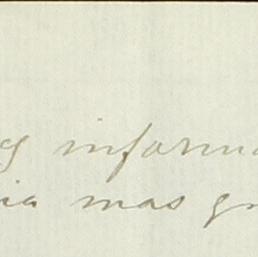 informa
ia mas gr